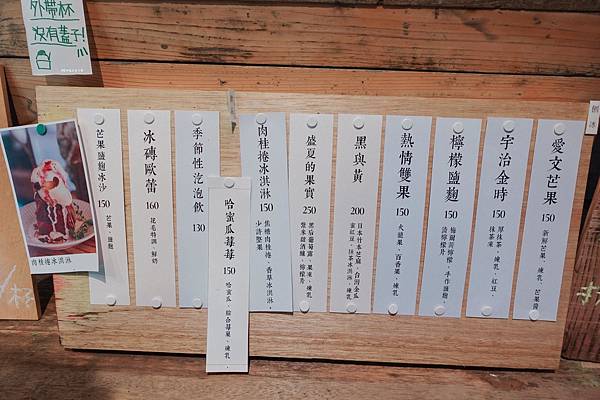 愛文芒果 150
新鮮芒果、煉乳、芒果醬
宇治金時 150
厚抹茶、煉乳、紅豆、
抹茶凍
檸檬鹽麴 150
梅爾檸檬、手作鹽麴、
漬檸檬片
熱情雙果 150
火龍果、百香果、煉乳
黑與黃 200
日本竹本芝麻、台灣金瓜
蜜紅豆、抹茶冰淇淋、煉乳
盛夏的果實 250
黑后葡萄露、果凍、煉乳
紫米甜酒釀、檸檬片
肉桂捲冰淇淋 150
焦糖肉桂捲、香草冰淇淋、
少許堅果
哈蜜瓜莓莓 150
哈蜜瓜、綜合莓果、煉乳
季節性氾泡飲 130
冰磚歐蕾 160
花冕特調、鮮奶
芒果鹽麴冰沙 150
芒果、鹽麴
肉桂捲冰淇淋
外帶杯
沒有蓋子!